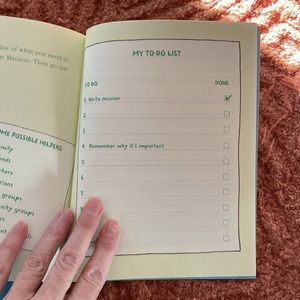 list of what you need to
r Mission. Then go out
ME POSSIBLE HELPERS:
mily
ends
hers
arians
groups
unity groups
ent
MY TO-DO LIST
TO DO: DONE
1. Write mission
2.
3.
4. Remember why it's important
5.
6.
7.